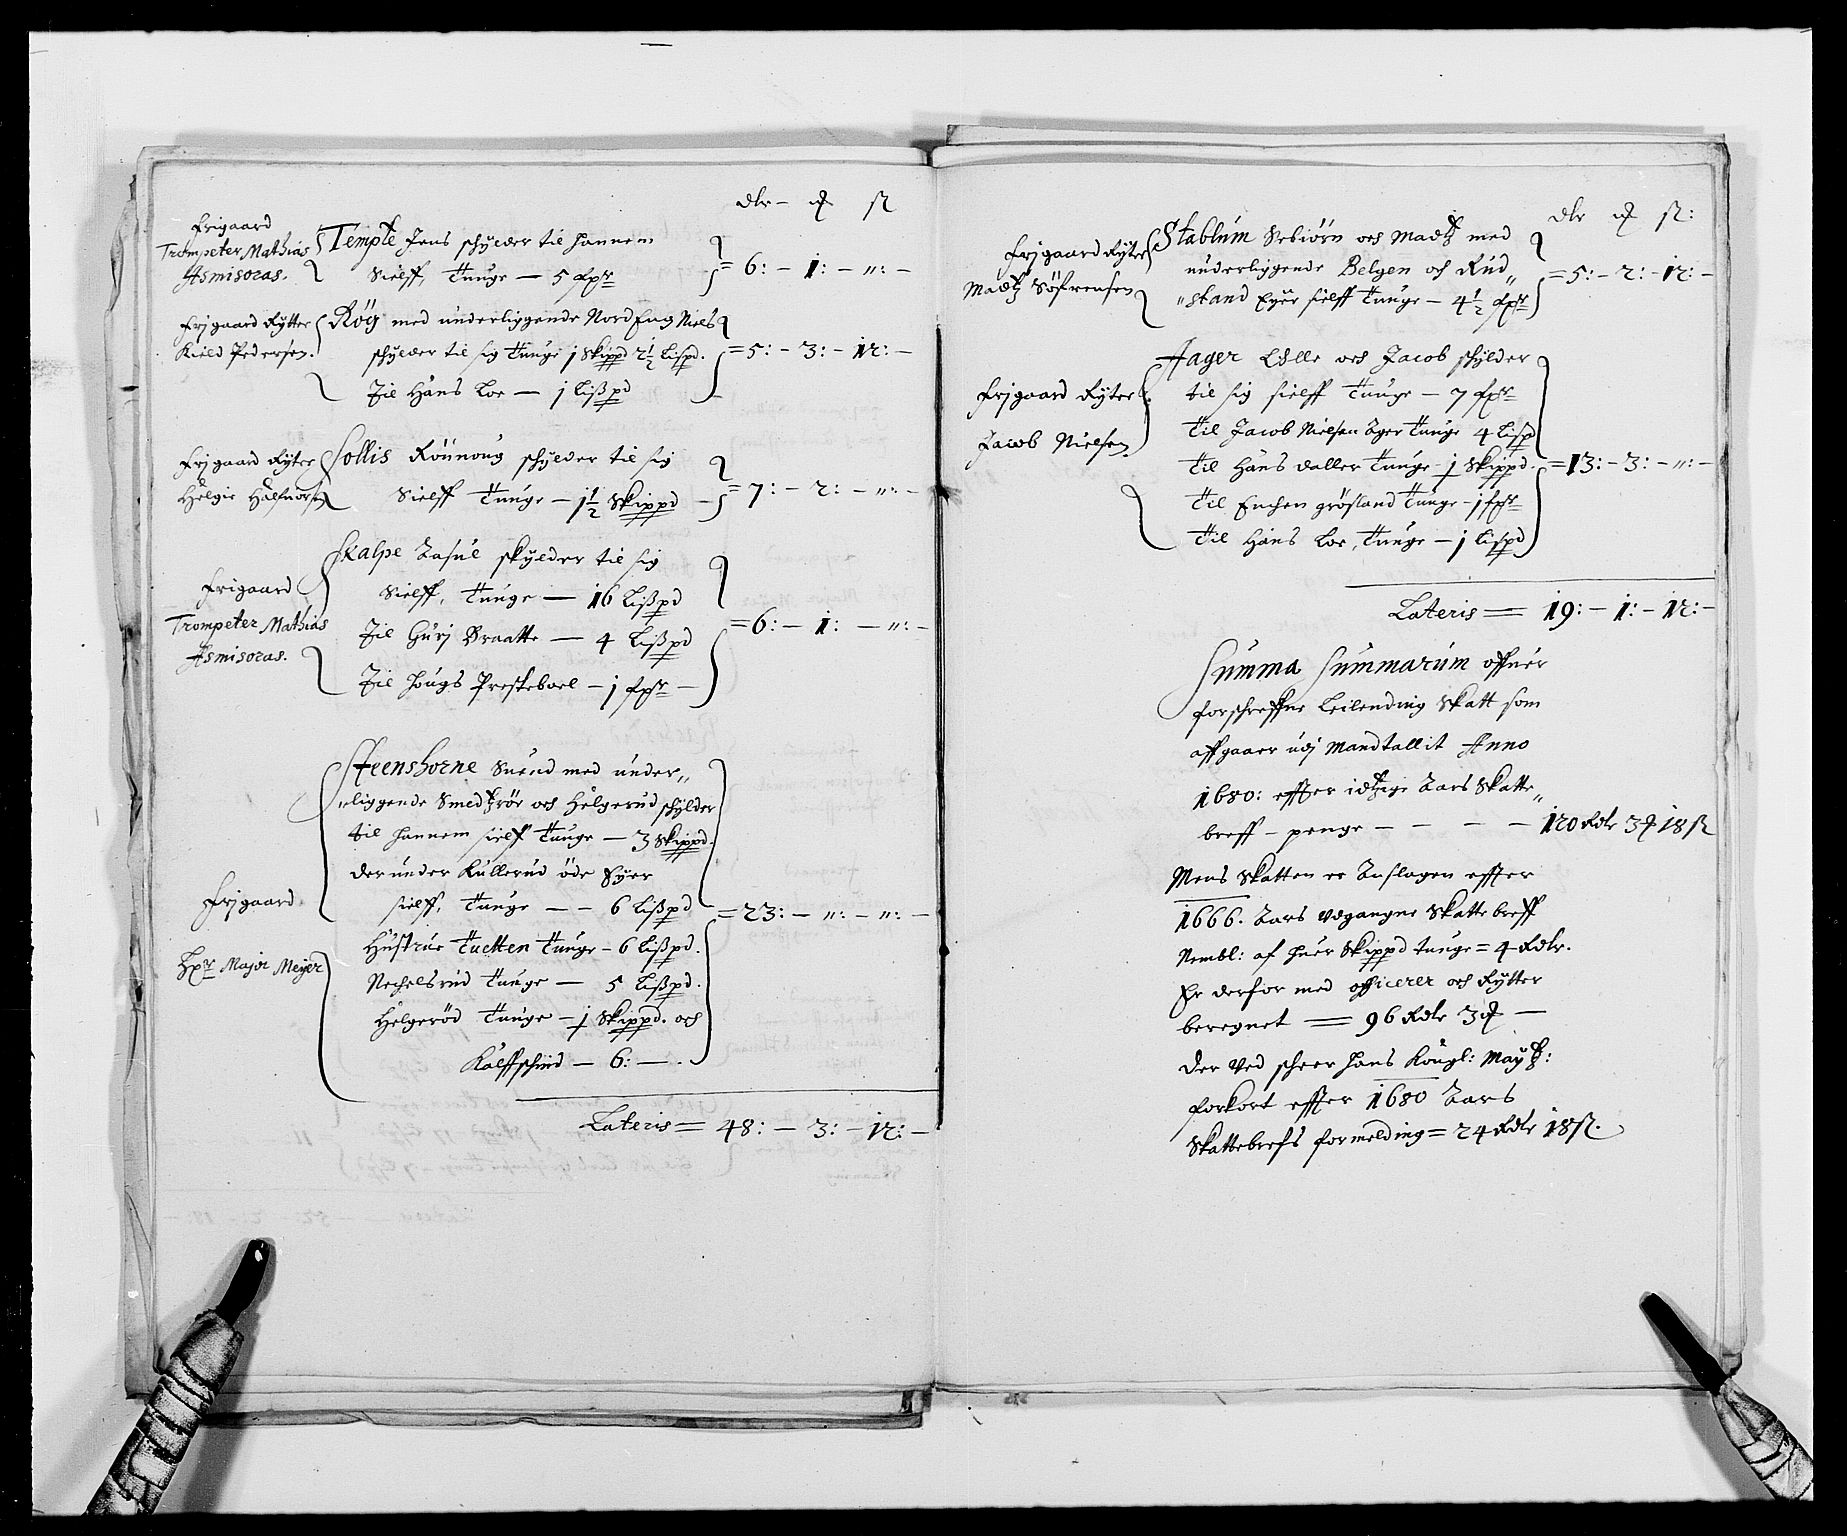 dlr – ꝗ ß
Frigaard
Trompeter Mathias
Asmisoras.
Temple Jens schylder til hannem
Sielff, Tunge — 5 fszr
= 6: – 1: – „: –
Frjgaard Rytter
Kield Pedersen.
Rög med underliggende Nord Eng Niels
schylder til sig Tunge j Skippd 2½ Lispd.
Til Hans Loe — j Lißpd
= 5: – 3: – 12: –
Frjgaard Ryter
Helgie Halfuors
Sollis Rönnoug schylder til sig
Sielff Tunge — j½ Skippd –
= 7: – 2: – „: –
Frigaard
Trompeter Mathias
Asmisoras.
Skalpe Aasul skylder til sig
Sielff, Tunge — 16 Lißpd
Til Gurj Braatte — 4 Lißpd
Til Hougs Presteboel – j fszr –
= 6: – 1: – „: –
Frjgaard
Major Meyer
Steenshorne Suend med under„
„liggende Smedtzröe och Helgerud schylder
til hannem sielf Tunge — 3 Skippd.
der under Kullerud öde Eyer
sielff, Tunge – – 6 Lißpd
Hustrue Tuetten Tunge – 6 Lißpd.
Nechelsrud Tunge — 5 Lißpd.
Helgeröd Tunge – j Skippd. och
Kalffschind — 6: —
= 23: – „: – „: –
Lateris = 48: – 3: – 12: –
dlr ꝗ ß:
Frjgaard Ryter
Madtz Söfrensen
Stablum Sebiörn och Madtz med
underliggende Belgen och Rud„
„stand Eyer sielff Tunge – 4½ fszr
= 5: – 2: – 12: –
Frjgaard Ryter
Jacob Nielsen
Ager Colle och Jacob schylder
til sig sielff Tunge — 7 fszr
Til Jacob Nielsen Ager Tunge 4 Lispd
Til Hans Daller Tunge – j Skippd.
Til Enchen grösland Tunge – j fszr
Til Hans Loe, Tunge — j Lispd
= 13: – 3: – „: –
Lateris = 19: – 1: – 12: –
Summa Summarum offuer
forschreffne Leilending Skatt som
affgaaer udj Mandtallit Anno
1680: effter idtzige Aars Skatte„
breff – penge – – – – 120 Rdlr 3ꝗ 18 ß
Mens Skatten er Anslagen effter
1666. Aars Udgangne Skatte breff
Nembl: af huer Skippd tunge = 4 Rdlr.
Er derfor med officerer och Rytter
beregnet — 96 Rdlr 3ꝗ —
Der Ved scheer Hans Kongl: Maytz:
forkort effter 1680 Aars
Skattebrefs formelding = 24 Rdlr 18 ß.